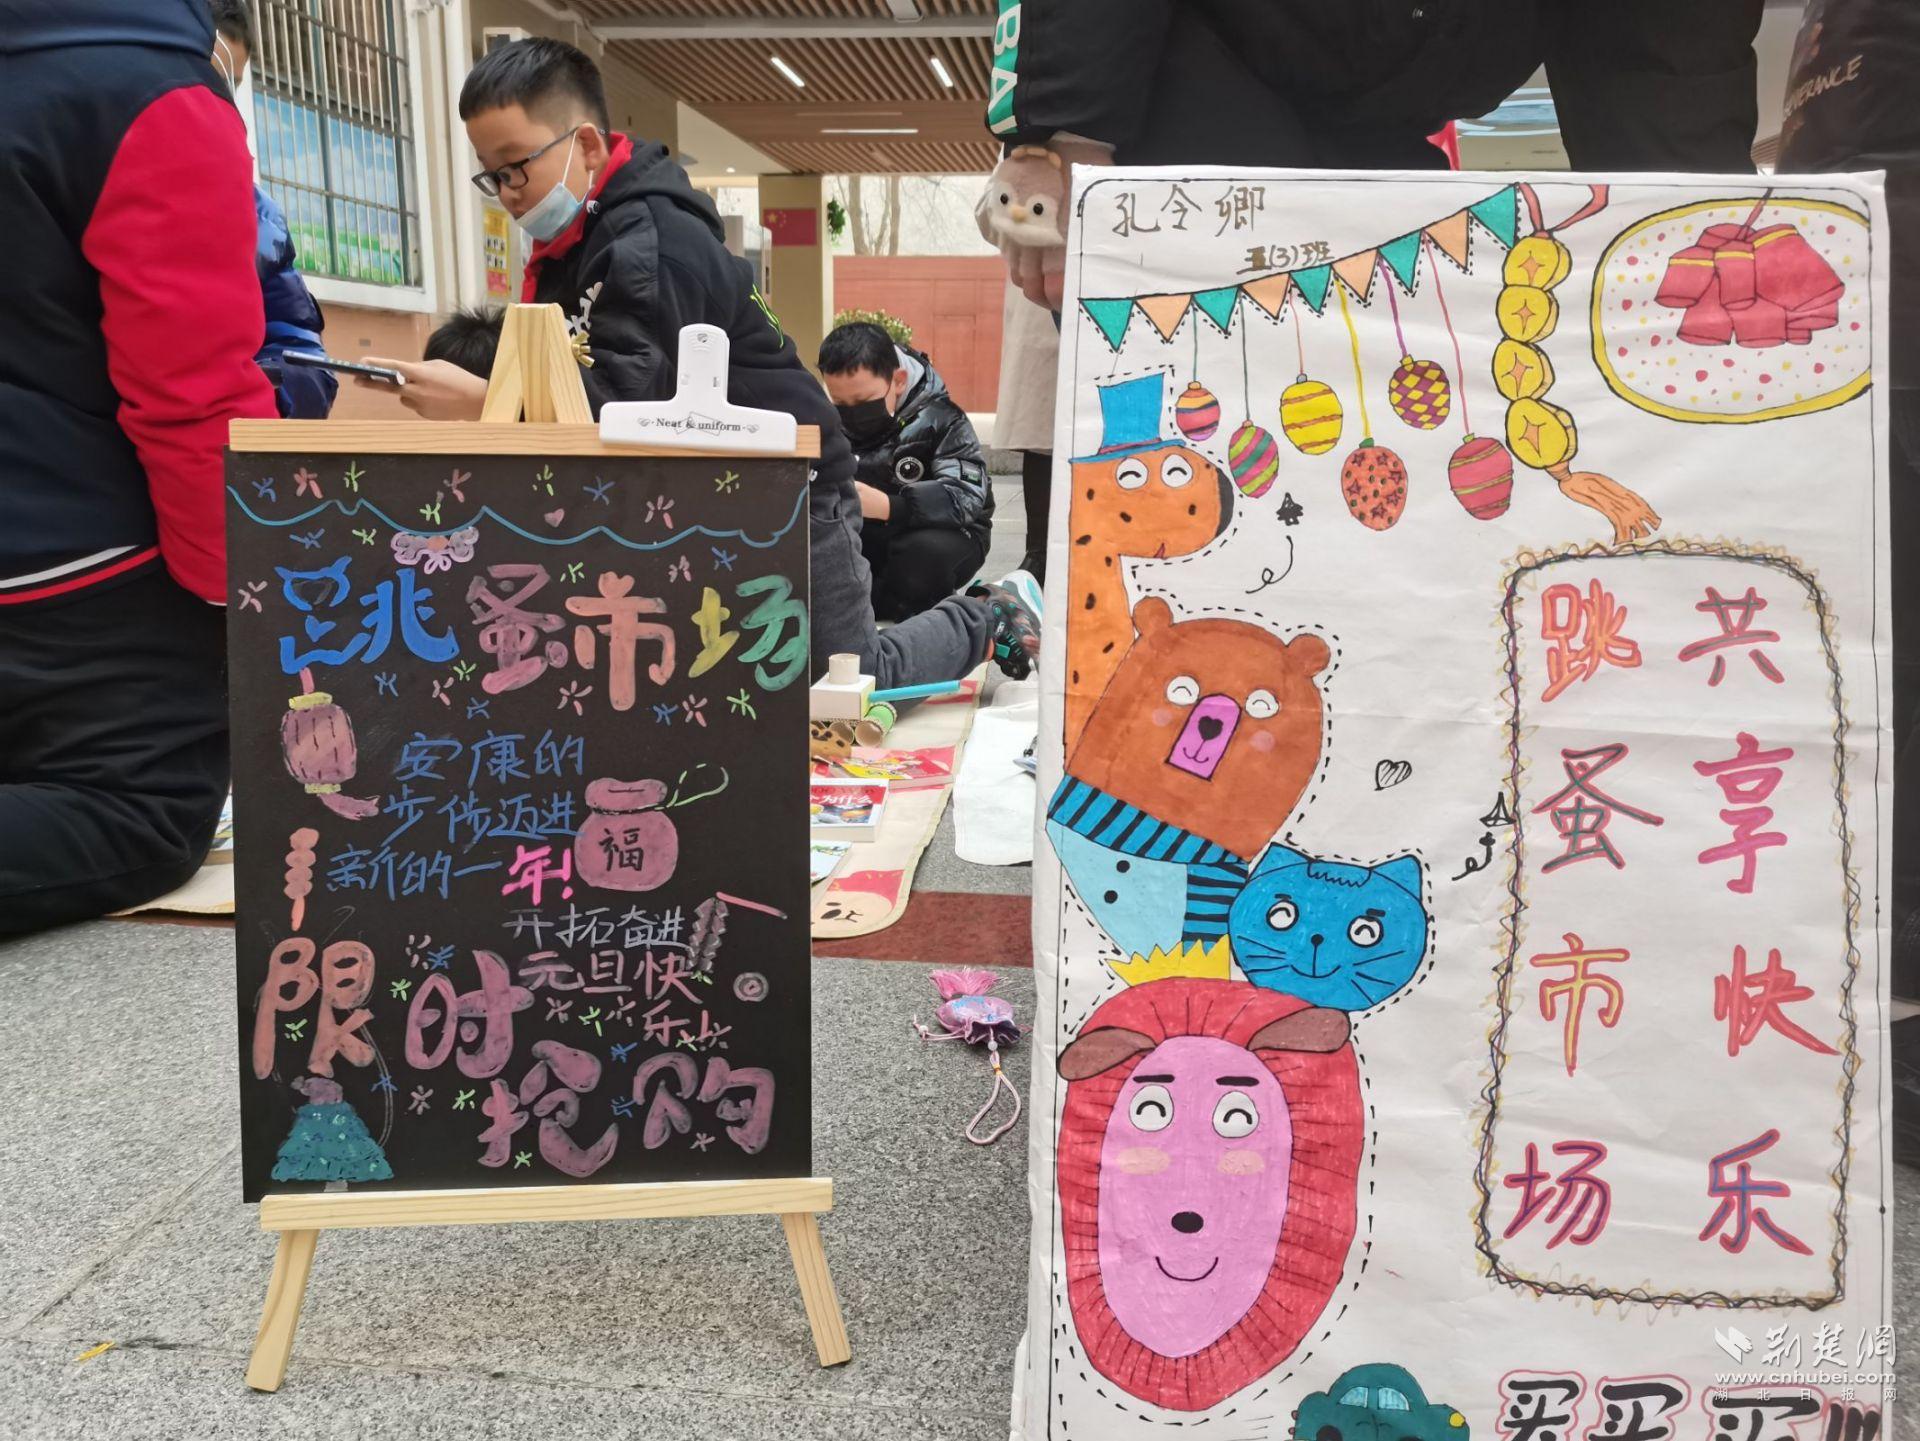 BAI
Neat & uniform
跳蚤市场
安康的
步伐迈进
新的一年!
福
开拓奋进
元旦快
乐
限时
抢购
孔令卿
五(3)班
共享快乐
跳蚤市场
买买买!!!
为什么
荆楚网
www.cnhubei.com
湖北日报网